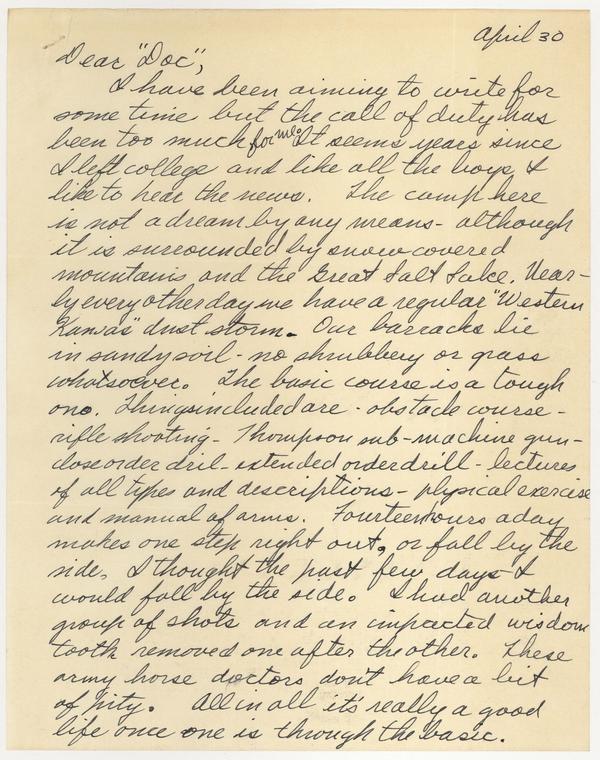 April 30
Dear "Doc",
I have been aiming to write for
some time but the call of duty has
been too much for me. It seems years since
I left college and like all the boys I
like to hear the news. The camp here
is not a dream by any means - although
it is surrounded by snow covered
mountains and the Great Salt Lake. Near-
ly every other day we have a regular "Western
Kansas" dust storm. Our barracks lie
in sandy soil - no shrubbery or grass
whatsoever. The basic course is a tough
one. Things included are - obstacle course -
rifle shooting - Thompson sub-machine gun -
close order dril - extended order drill - lectures
of all types and descriptions - physical exercise
and manual of arms. Fourteen hours a day
makes one step right out, or fall by the
side. I thought the past few days I
would fall by the side. I had another
group of shots and an impacted wisdom
tooth removed one after the other. These
army horse doctors don't have a bit
of pity. All in all it's really a good
life once one is through the basic.